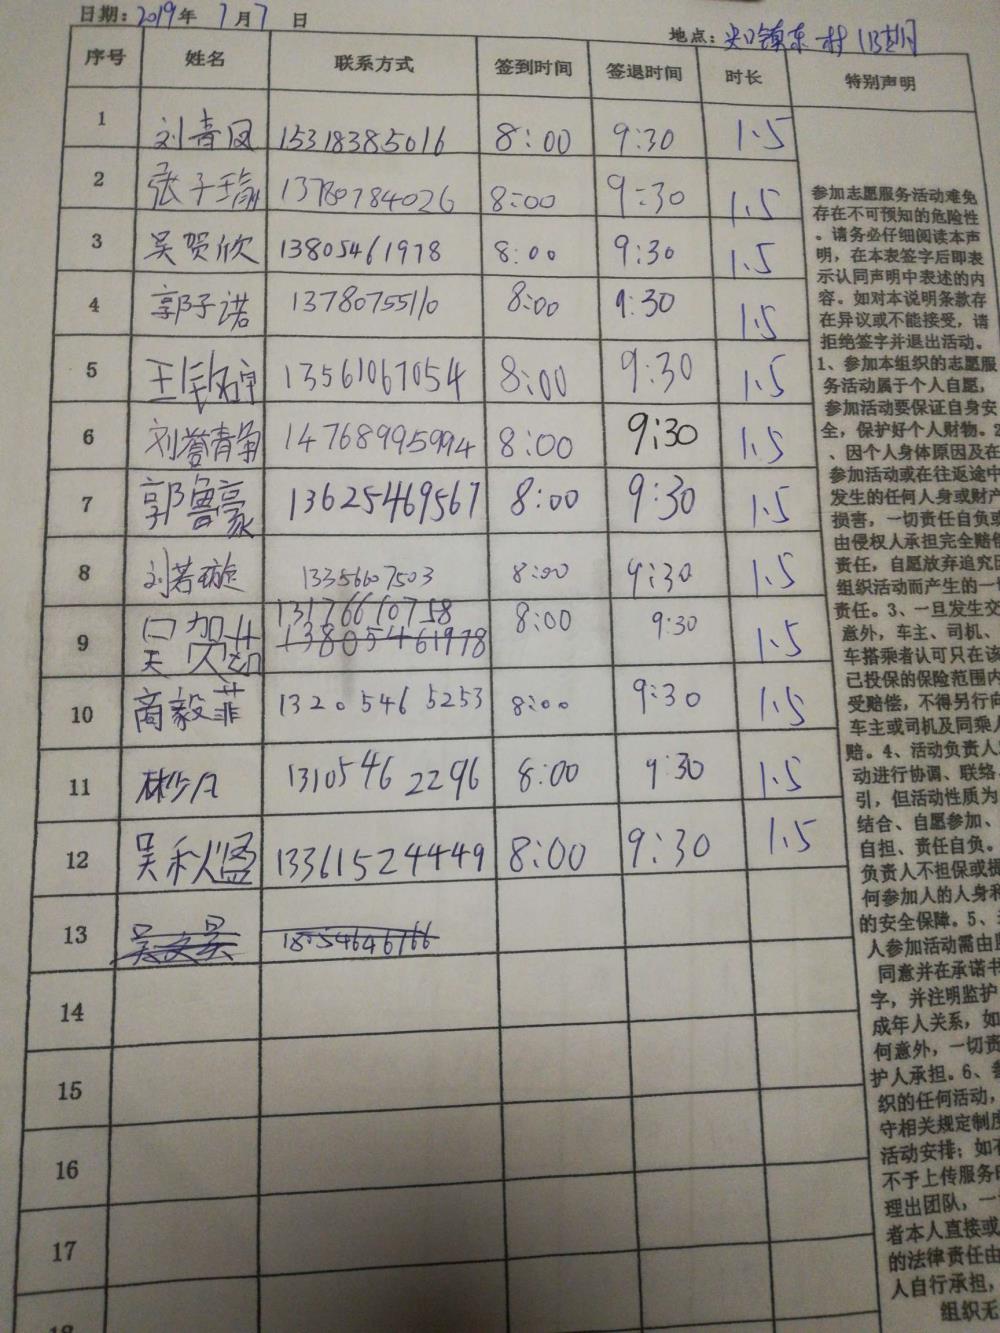 日期：2019年 7月7 日
地点：镇东村
序号 姓名 联系方式 签到时间 签退时间 时长 特别声明
1 刘青凤 15318385016 8:00 9:30 1.5
2 张子瑜 13780784026 8:00 9:30 1.5
3 吴贺欣 13805461978 8:00 9:30 1.5
4 郭子诺 13780755110 8:00 9:30 1.5
5 王 13561067054 8:00 9:30 1.5
6 刘誉 14768995994 8:00 9:30 1.5
7 郭鲁豪 13625469567 8:00 9:30 1.5
8 刘若璇 13356607503 8:00 9:30 1.5
13176610758
9 吴贺喆 13805461978 8:00 9:30 1.5
10 商毅菲 1320 546 5253 8:00 9:30 1.5
11 1310546 2296 8:00 9:30 1.5
12 吴秋盈 13361524449 8:00 9:30 1.5
13 吴文昊 18254646766
14
15
16
17
18
参加志愿服务活动难免
存在不可预知的危险性
。请务必仔细阅读本声
明，在本表签字后即表
示认同声明中表述的内
容。如对本说明条款存
在异议或不能接受，请
拒绝签字并退出活动。
1、参加本组织的志愿服
务活动属于个人自愿，
参加活动要保证自身安
全，保护好个人财物。2
、因个人身体原因及在
参加活动或在往返途中
发生的任何人身或财产
损害，一切责任自负或
由侵权人承担完全赔偿
责任，自愿放弃追究因
组织活动而产生的一切
责任。3、一旦发生交
意外，车主、司机、
车搭乘者认可只在该
已投保的保险范围内
受赔偿，不得另行向
车主或司机及同乘人
赔。4、活动负责人
动进行协调、联络、
引，但活动性质为
结合、自愿参加、
自担、责任自负。
负责人不担保或损
何参加人的人身和
的安全保障。5、
人参加活动需由
同意并在承诺书
字，并注明监护
成年人关系，如
何意外，一切责
护人承担。6、
织的任何活动，
守相关规定制度
活动安排；如有
不予上传服务时
理出团队，一
者本人直接或
的法律责任由
人自行承担，
组织无